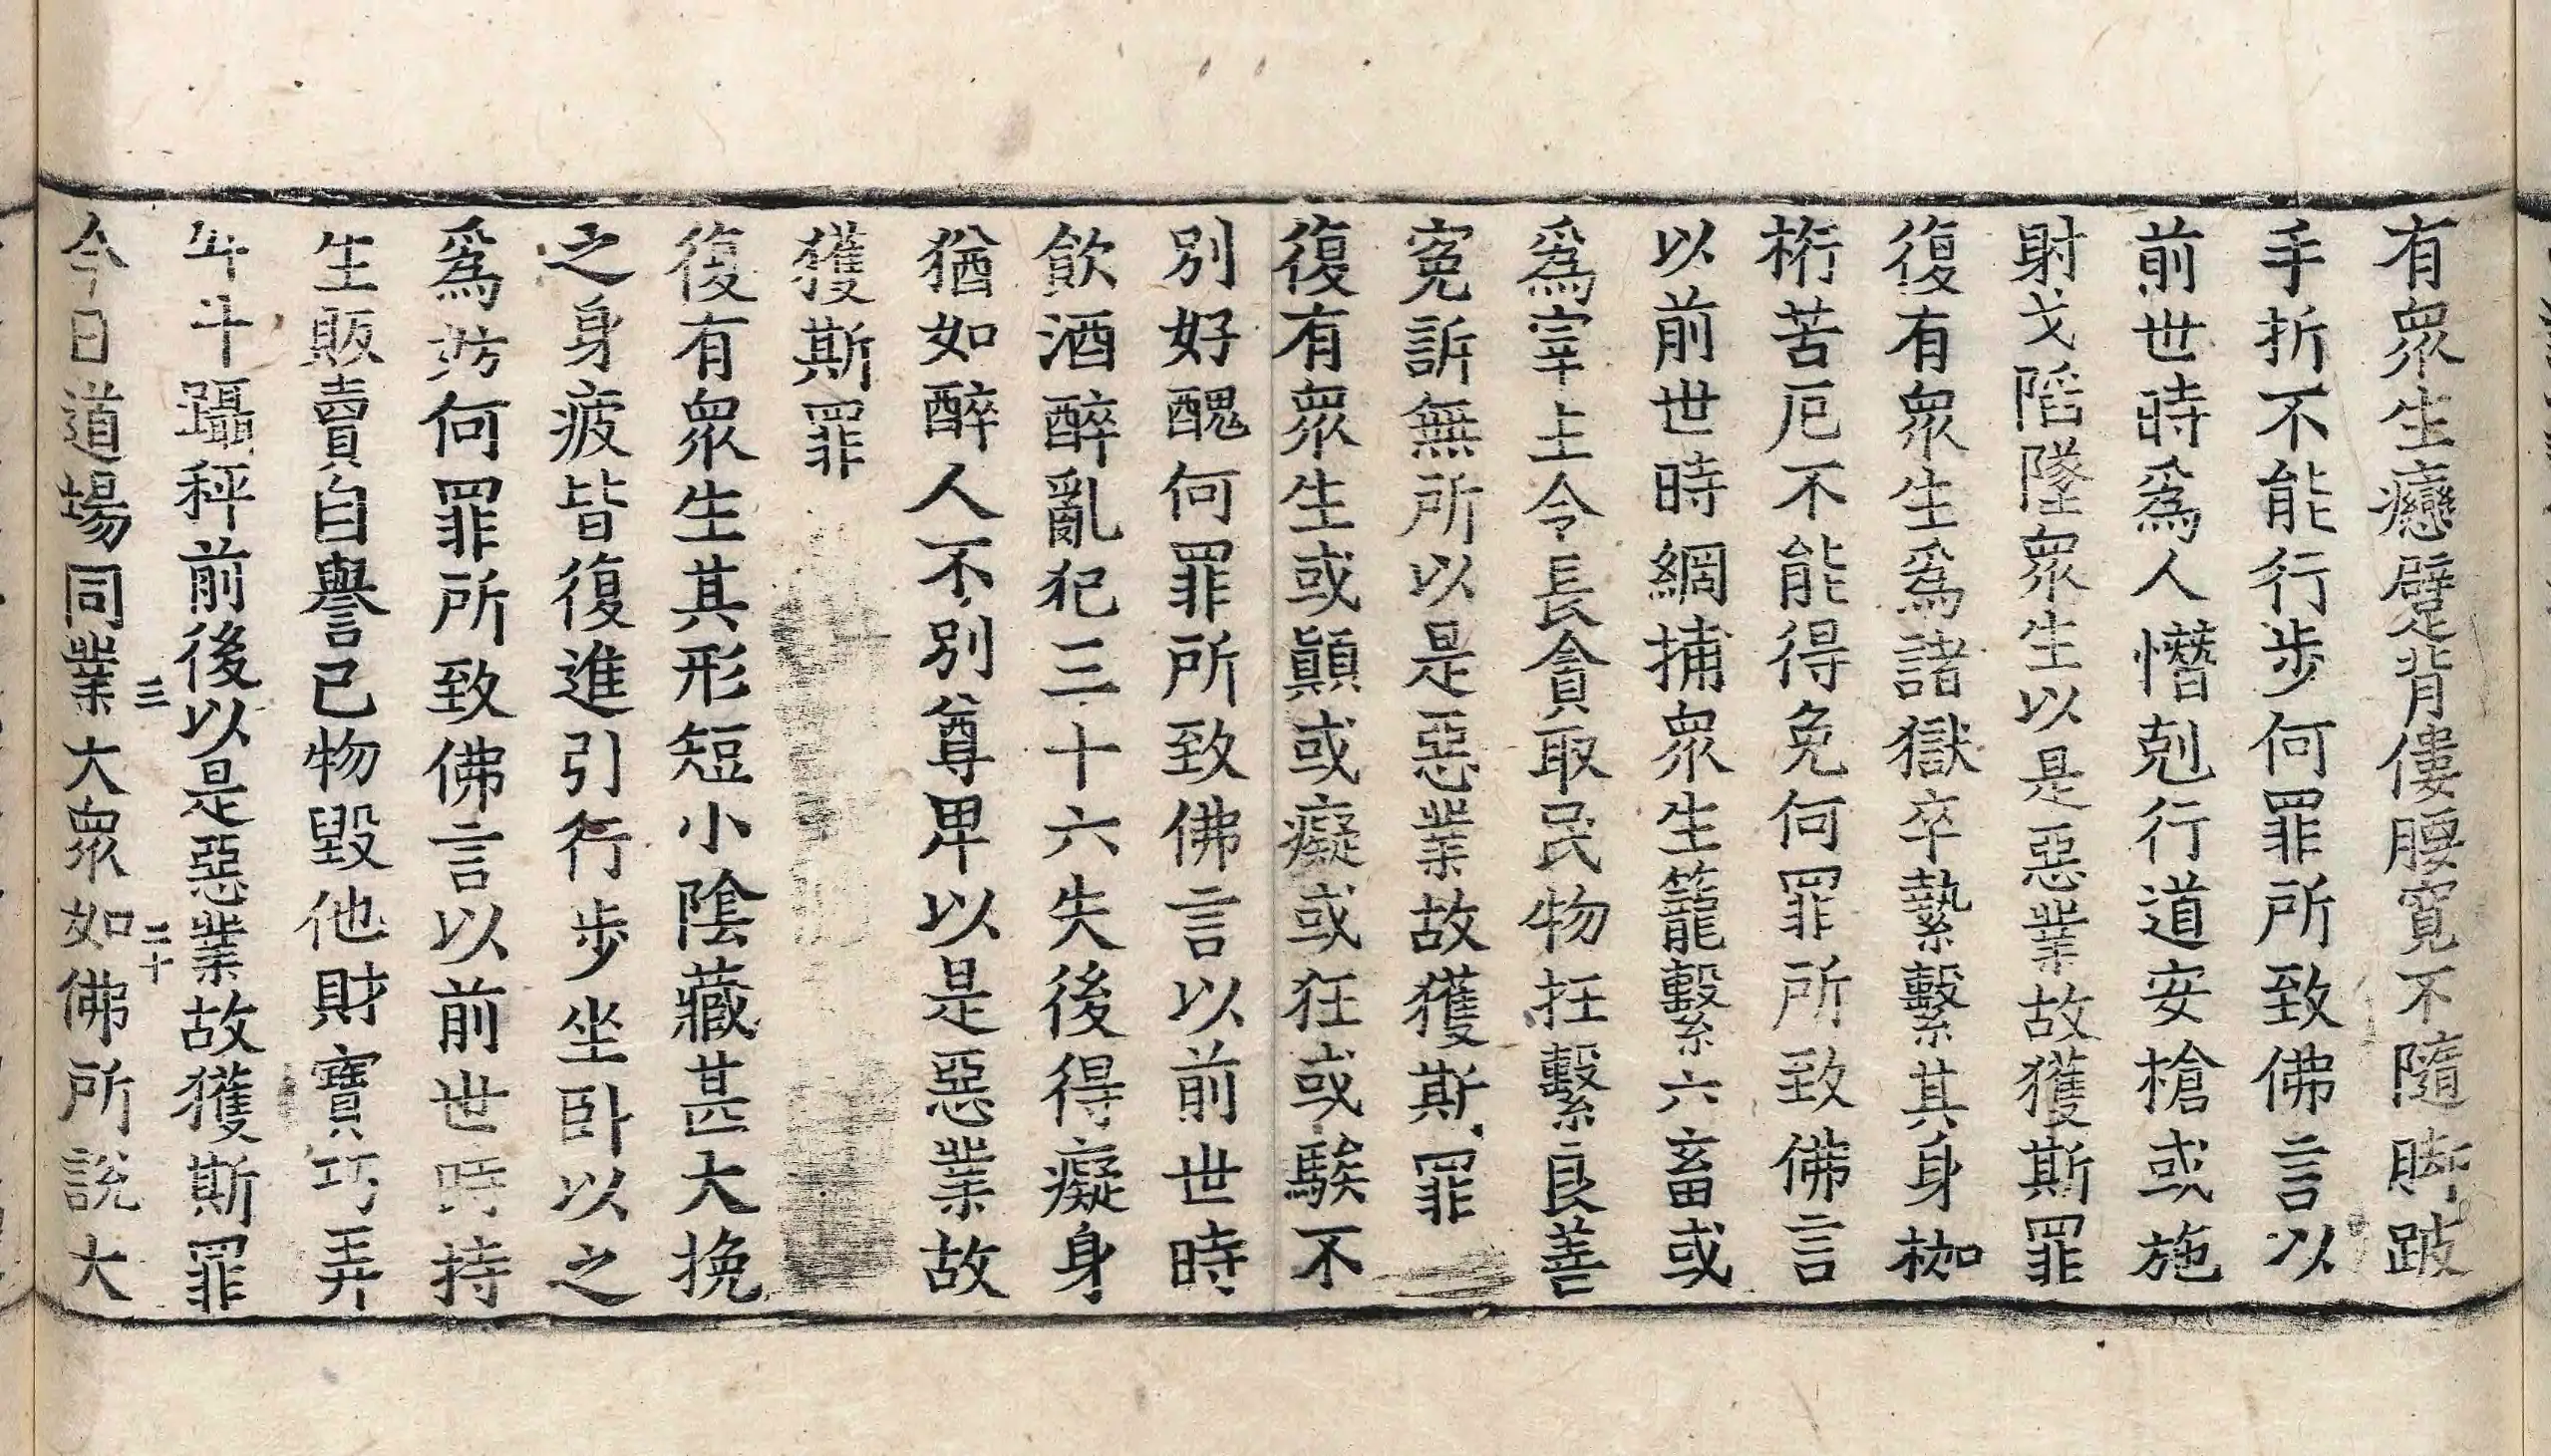 有衆生癭躄背僂腰寬不隨脚跛
手折不能行步何罪所致佛言以
前世時爲人憯剋行道安槍或施
射戈陷墜衆生以是惡業故獲斯罪
復有衆生爲諸獄卒縶繫其身枷
桁苦厄不能得免何罪所致佛言
以前世時網捕衆生籠繫六畜或
爲宰主令長貪取民物抂繫良善
寃訴無所以是惡業故獲斯罪
復有衆生或顚或癡或狂或騃不
別好醜何罪所致佛言以前世時
飮酒醉亂犯三十六失後得癡身
猶如醉人不別尊卑以是惡業故
獲斯罪
復有衆生其形短小陰藏甚大挽
之身疲皆復進引行步坐卧以之
爲妨何罪所致佛言以前世時持
生販賣自譽己物毀他財寶巧弄
升斗躡秤前後以是惡業故獲斯罪
三 二十
今日道場同業大衆如佛所說大